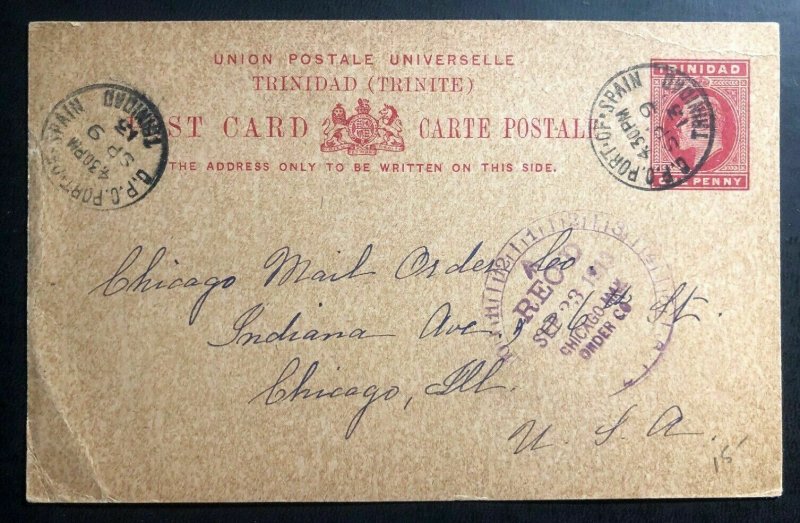 UNION POSTALE UNIVERSELLE
TRINIDAD (TRINITE)
POST CARD CARTE POSTALE
THE ADDRESS ONLY TO BE WRITTEN ON THIS SIDE.
TRINIDAD
ONE PENNY
G.P.O. PORT-OF-SPAIN
4.30PM
SP 9
13
TRINIDAD
G.P.O. PORT-OF-SPAIN
4.30PM
SP 9
13
TRINIDAD
Chicago Mail Order Co
Indiana Ave, & 26th St.
Chicago, Ill.
U. S. A.
A
REC'D
SEP 23
CHICAGO MAIL
ORDER CO
15